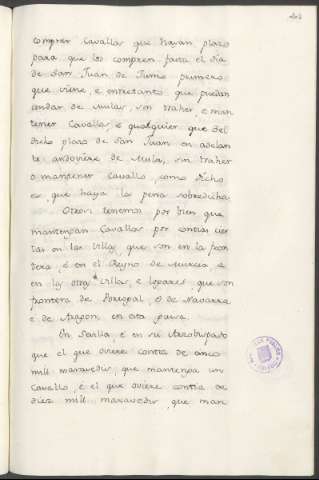 comprar Cavallos que hayan plazo
para que los compren fasta el dia
de San Juan de Junio primero
que viene, e entretanto que puedan
andar de Mulas, sin traher, e man
tener Cavallos, e qualquier que del
dicho plazo de San Juan en adelan
te andoviere de Mula, sin traher
o mantener Cavallo, como dicho
es, que haya la pena sobredicha
Otrosi tenemos por bien que
mantengan Cavallos por contias cier
tas en las Villas, que son en la fron
tera, e en el Reyno de Murcia e
en las otras Villas, e logares, que son
frontera de Portogal, e de Navarra
e de Aragon, en esta guisa.
En Sevilla, e en su Arzobispado
que el que oviere contia de cinco
mill maravedis, que mantenga un
Cavallo, e el que oviere contia de
diez mill maravedis, que man